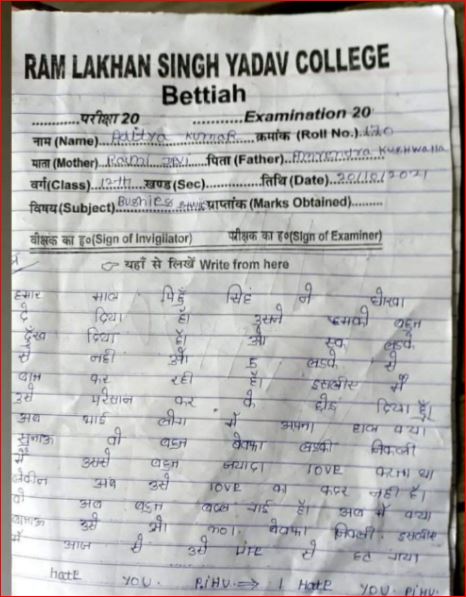 RAM LAKHAN SINGH YADAV COLLEGE
Bettiah
............परीक्षा 20 ............Examination 20
नाम (Name)...Aditya Kumar...क्रमांक (Roll No.)...120
माता (Mother)... Devi ...पिता (Father)... Kushwaha
वर्ग(Class)...12th...खण्ड (Sec)............तिथि (Date)...20/10/2021
विषय(Subject)...प्राप्तांक (Marks Obtained).........
वीक्षक का ह०(Sign of Invigilator) परीक्षक का ह०(Sign of Examiner)
यहाँ से लिखें Write from here
हमार नाम पिहुँ सिंह ने धोखा
दे दिया है। उसने हमको बहुत
दुँख दिया है। ओ एक लडके
से नही ओ 5 लडके से
बात कर रही है। इसलीए मैं
उसे परेसान कर के छोड दिया हूँ।
अब भाई लोग मैं अपना हाल क्या
सुनाऊ वो बहुत बेवफा लडकी निकली
मैं उससे बहुत जयादा love करता था
लेकीन अब उसे love का कदर नही है।
वो अब बहुत बदल गई है। अब मैं क्या
बताऊ उसे ओ no1. बेवफा निकली. इसलीए
मैं आज से उसे प्यार से हट गया
hate you. Pihu. ⇒ I Hate you. Pihu.